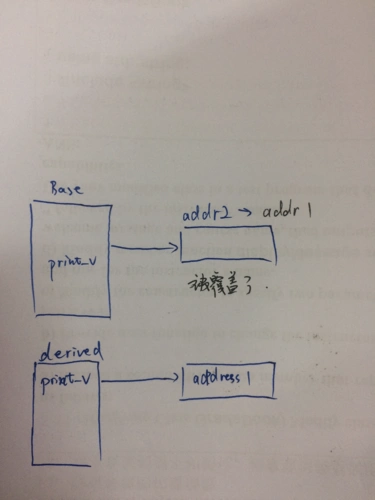 Base
addr2 → addr1
print_v
被覆盖了.
derived
print_v
address1